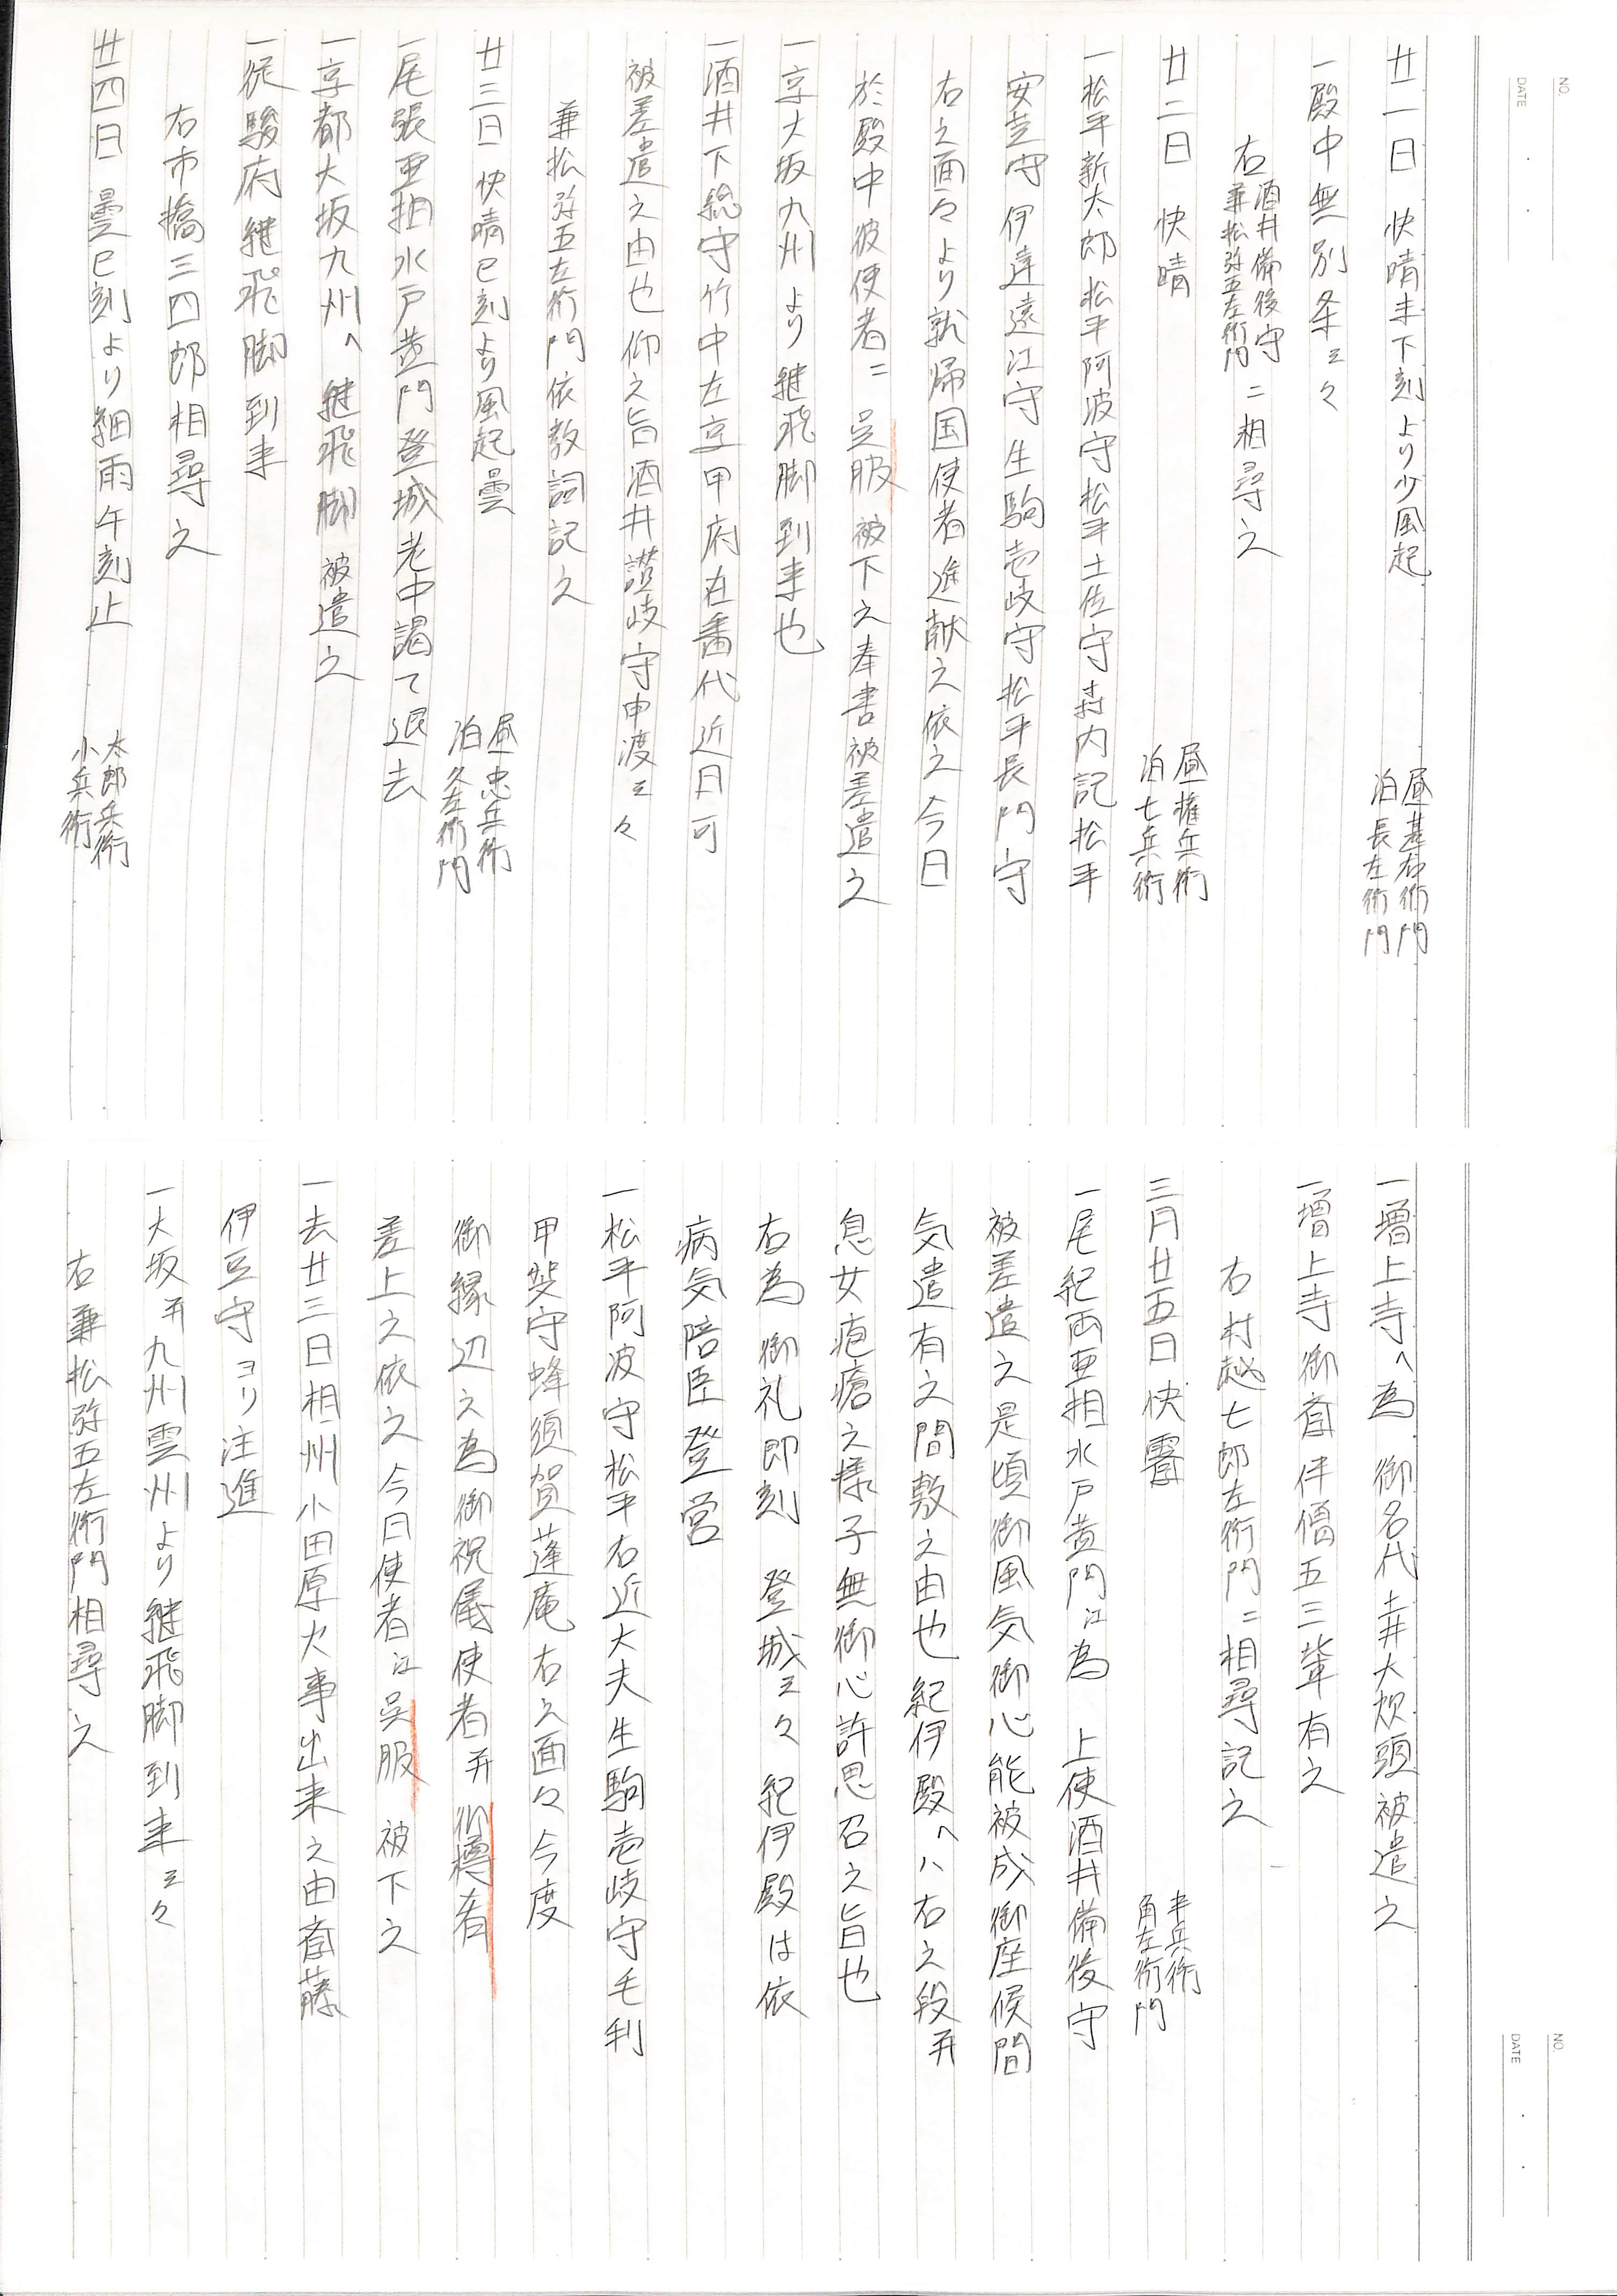 NO.
DATE
廿一日 快晴未下刻より少風起 昼甚右衛門 泊長左衛門
一殿中無別条云々
右酒井備後守 兼松弥五左衛門ニ相尋之
廿二日 快晴 昼権兵衛 泊七兵衛
一松平新太郎松平阿波守松平土佐守森内記松平
安芸守伊達遠江守生駒壱岐守松平長門守
右之面々より就帰国使者進献之依之今日
於殿中彼使者ニ呉服被下之奉書被差遣之
一京大坂九州より継飛脚到来也
一酒井下総守竹中左京甲府在番代近日可
被差遣之由也仰之旨酒井讃岐守申渡云々
兼松弥五左衛門依教詞記之
廿三日快晴巳刻より風起曇 昼忠兵衛 泊久左衛門
一尾張亜相水戸黄門登城老中謁て退去
一京都大坂九州へ継飛脚被遣之
一従駿府継飛脚到来
右市橋三四郎相尋之
廿四日曇巳刻より細雨午刻止 太郎兵衛 小兵衛
NO.
DATE
一増上寺へ為御名代土井大炊頭被遣之
一増上寺御斎伴僧五三輩有之
右村越七郎左衛門ニ相尋記之
三月廿五日快霽 半兵衛 角左衛門
一尾紀両亜相水戸黄門江為 上使酒井備後守
被差遣之是頃御風気御心能被成御座候間
気遣有之間敷之由也紀伊殿へハ右之段并
息女疱瘡之様子無御心許思召之旨也
右為御礼即刻 登城云々紀伊殿は依
病気陪臣登営
一松平阿波守松平右近大夫生駒壱岐守毛利
甲斐守蜂須賀蓬庵右之面々今度
御縁辺之為御祝儀使者并御樽肴
差上之依之今日使者江呉服被下之
一去廿三日相州小田原火事出来之由斎藤
伊豆守ヨリ注進
一大坂并九州雲州より継飛脚到来云々
右兼松弥五左衛門相尋之